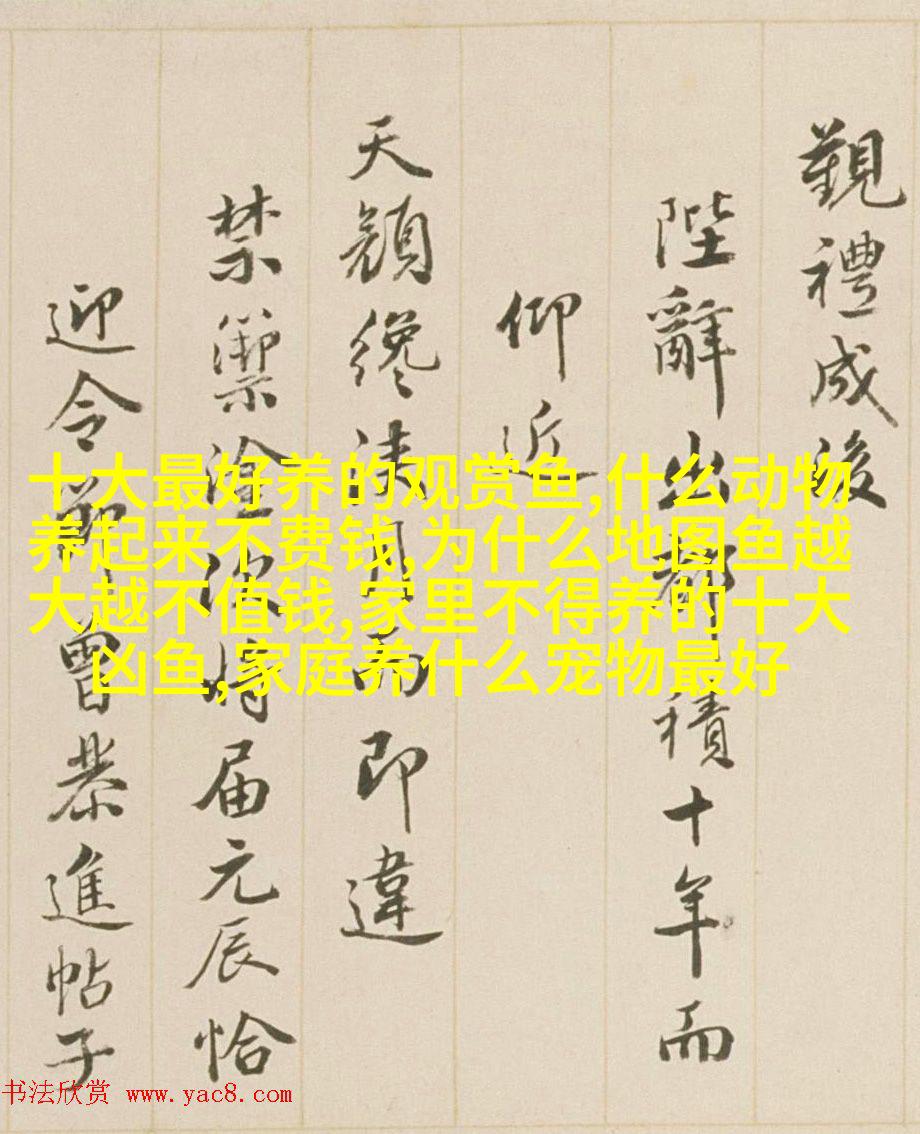 覲禮成後
陛辭出都積十年而
仰近
天顏纔浹月而即違
禁籞塗將届元辰恰
迎令節曾恭進帖子
十大最好养的观赏鱼,什么动物
养起来不费钱,为什么地图鱼越
大越不值钱,家里不得养的十大
凶鱼,家庭养什么宠物最好
书法欣赏 www.yac8.com